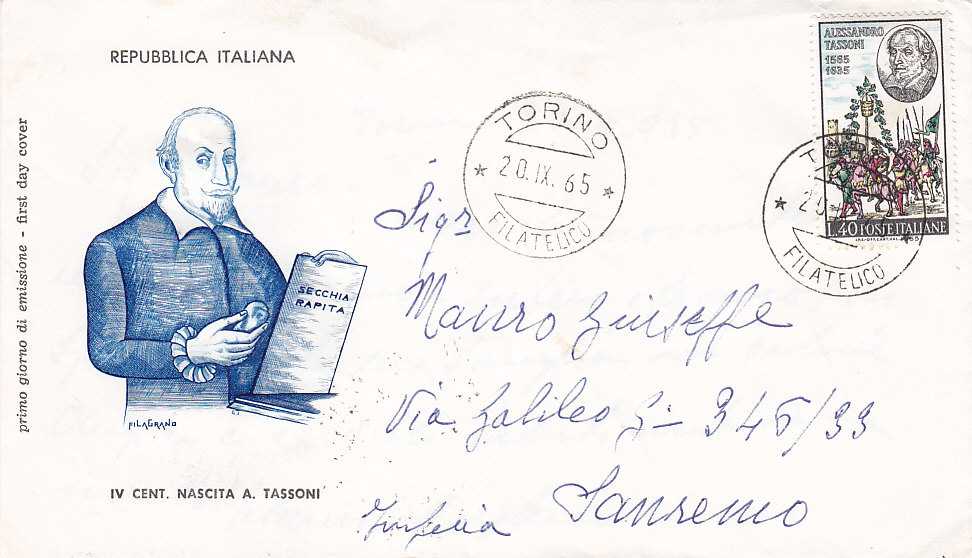 REPUBBLICA ITALIANA
primo giorno di emissione - first day cover
SECCHIA
RAPITA
FILAGRANO
IV CENT. NASCITA A. TASSONI
TORINO
* 20.IX.65 *
FILATELICO
ALESSANDRO
TASSONI
1565
1635
L.40 POSTE ITALIANE
T
* 2
FILATELICO
Sigr
Mauro Giuseffe
Via Galileo G- 345/33
Sanremo
Imperia